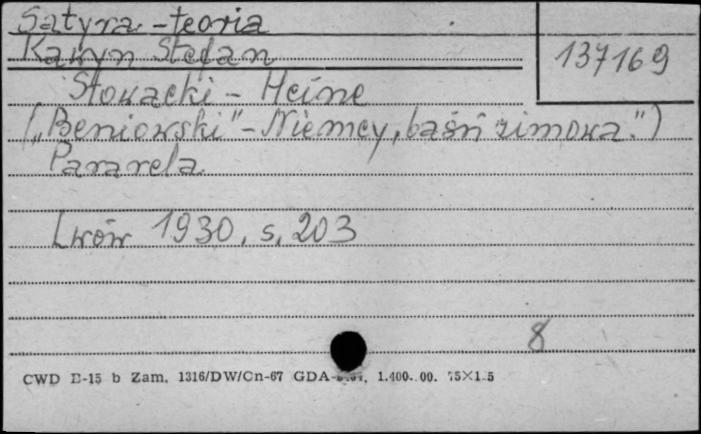 Satyra - teoria
Kawyn Stefan
137169
Słowacki - Heine
(„Beniowski" - Niemcy, baśń zimowa.")
Pararela
Lwów 1930, s. 203
8
CWD E-15 b Zam. 1316/DW/Cn-67 GDA- 1.400. 00. 75×1 5